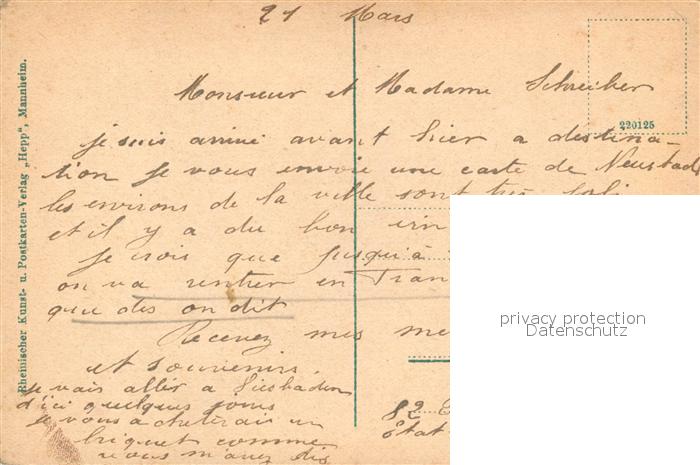 21 Mars
Monsieur et Madame Schreiber
je suis arrivé avant hier a destina-
tion je vous envoie une carte de Neustadt
les environs de la ville sont très joli
et il y a du bon vin
je crois que jusqu'à
on va rentrer en Fran
que des on dit
Recevez mes me
et souvenirs.
je vais aller a Wiesbaden
d'ici quelques jours
je vous achèterais un
briquet comme
vous m'avez dis
82
Etat
220125
Rheinischer Kunst- u. Postkarten-Verlag „Hepp", Mannheim.
privacy protection
Datenschutz